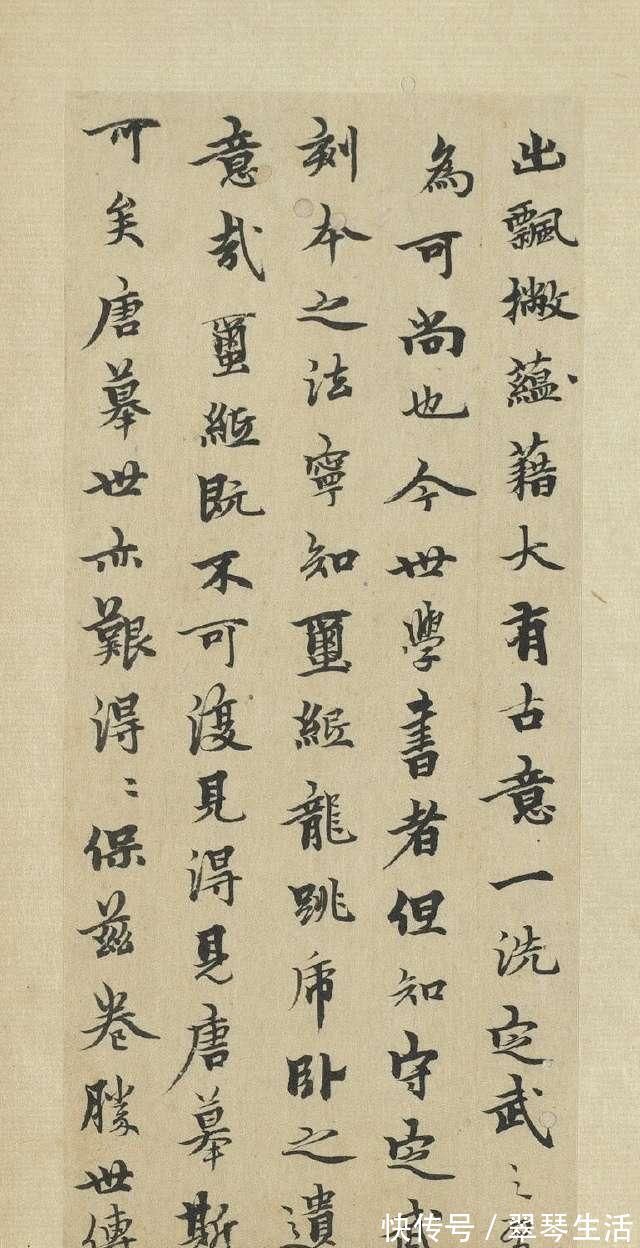 出飄撇蘊藉大有古意一洗定武之
為可尚也今世學書者但知守定武
刻本之法寧知璽紙龍跳虎卧之遺
意哉璽紙既不可復見得見唐摹斯
可矣唐摹世亦艱得〻保茲卷勝世傳
快传号/翠琴生活